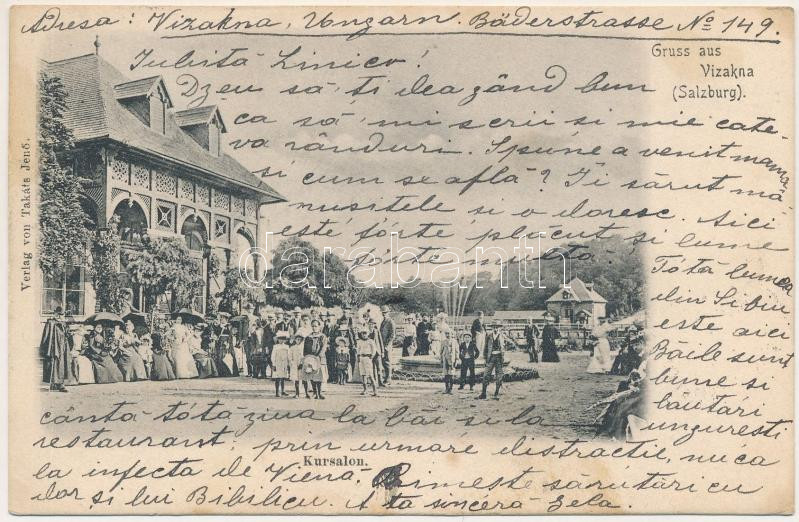 Adresa: Vizakna, Ungarn. Bäderstrasse No 149.
Gruss aus
Vizakna
(Salzburg).
Iubită Linico!
Dzeu să, ți dea gând bun
ca să, mi scrii si mie cate-
va rânduri. Spune a venit mama
si cum se aflā? Ti sărut mâ
nusitele si o doresc. Aici
este forte plăcut si lume
foste multă
Tótă lumea
din Sibiu
este aici
Băile sunt
bune si
lăutari
unguresti
cântă tótă ziua la băi si la
restaurant, prin urmare distractie, nu ca
la infecta de Viena. Primeste sărutări cu
dor și lui Bibilicu. A ta sinceră Zela.
Kursalon.
Verlag von Takáts Jenő.
darabanth